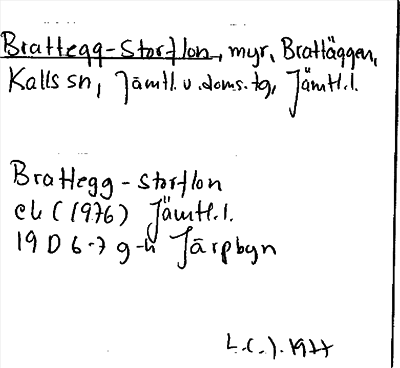 Brattegg-Storflon, myr, Brattäggen,
Kalls sn, Jämtl. v. doms. tg, Jämtl. l.
Brattegg-storflon
ek (1976) Jämtl. l.
19 D 6-7 g-h Järpbyn
L.C.J. 1977